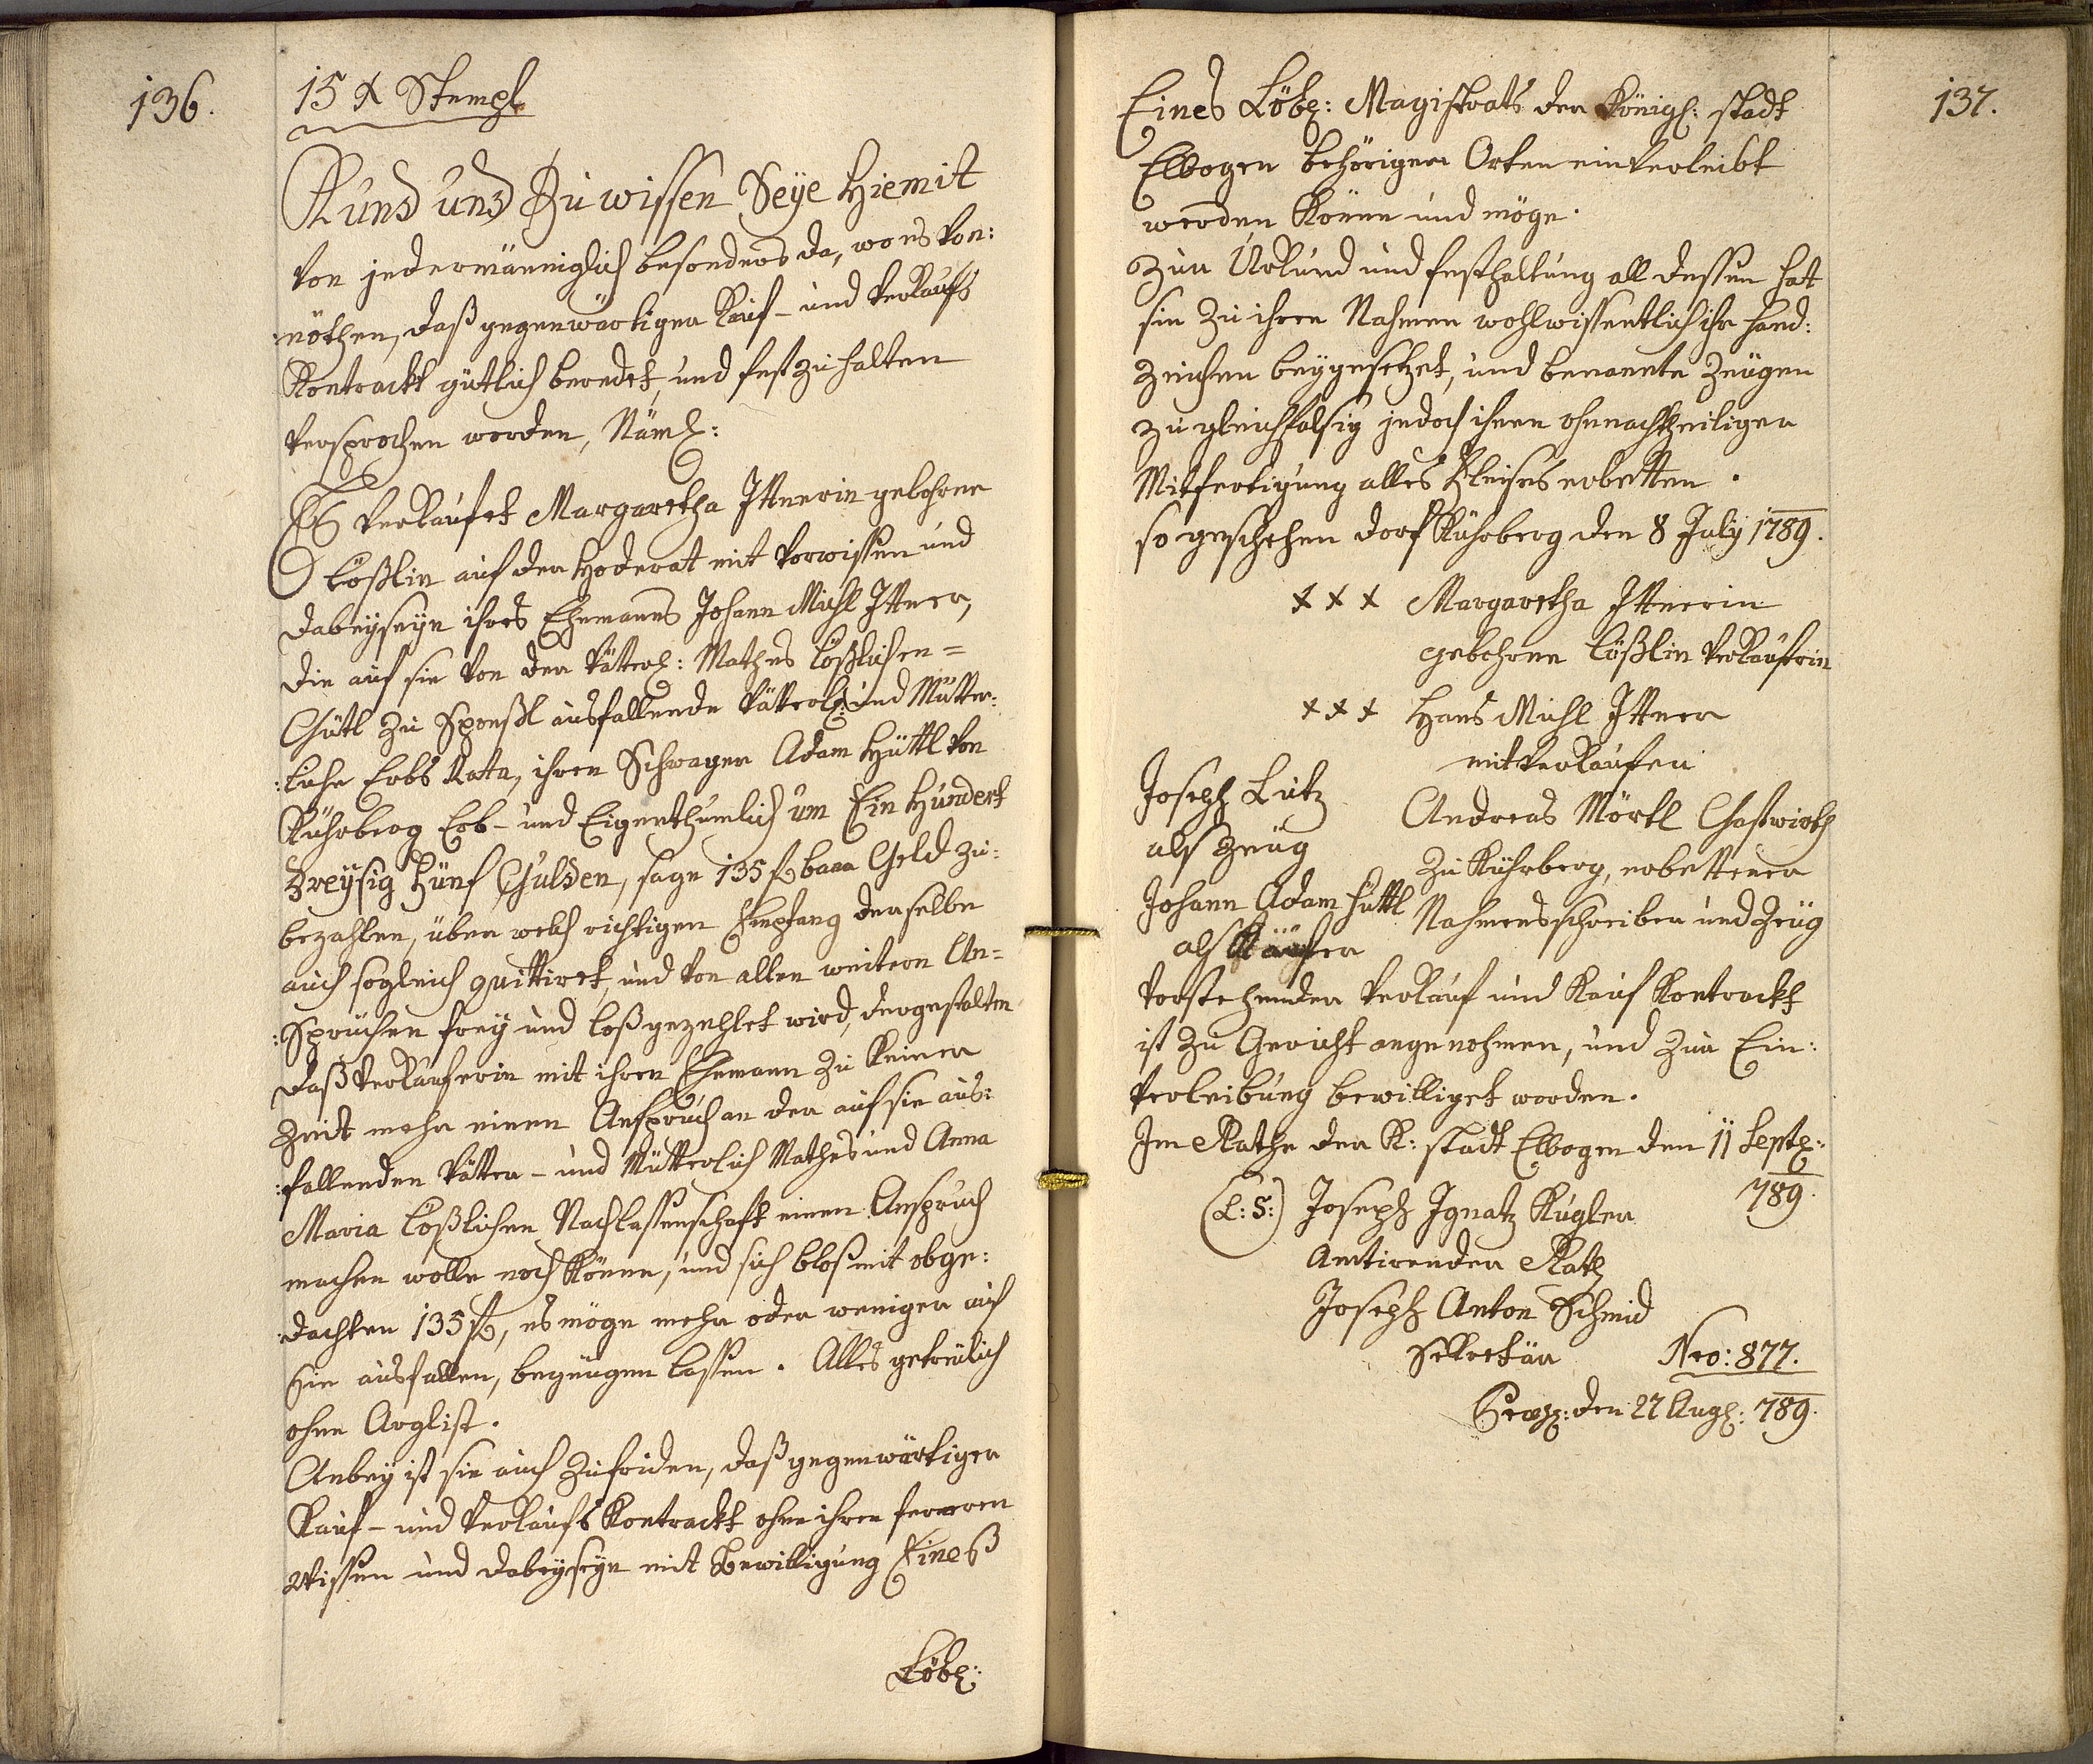 136.
15 x Stempl
Kund und Zu wissen Seÿe Hiemit
von jedermänniglich besonders da, wo es von:
:nöthen, daß gegenwärtiger Kauf- und Verkaufs
Kontrackt gütlich beredet, und fest zu halten
versprochen worden, Näml:
Es verkaufet Margaretha Ittnerin gebohrne
Lößlin auf der Hoderat mit Vorwissen und
dabeyseyn ihres Ehemanns Johann Michl Ittner,
die auf sie von der Vätterl: Mathes Lößlischen=
Gütl zu Sponßl ausfallende Vätterl: und Mütter:
:liche Erbs Rata, ihren Schwager Adam Hüttl von
Kührberg Erb- und Eigenthumlich um Ein Hundert
Dreÿsig Fünf Gulden, sage 135 f baar Geld zu:
bezahlen, über welch richtigen Empfang derselbe
auch sogleich quittiret, und von allen weitern An=
:Sprüchen frey und loß gezehlet wird, dergestalten
daß Verkäuferin mit ihren Ehemann zu keiner
Zeit mehr einen Anspruch an der auf sie aus:
:fallenden Vätter- und Mütterlich Mathes und Anna
Maria Lößlichen Nachlassenschaft einen Anspruch
machen wolle noch könne, und sich blos mit obge:
:dachten 135 f, es möge mehr oder weniger auf
Sie ausfallen, begnügen lassen. Alles getreulich
ohne Arglist.
Anbey ist sie auch zufriden, daß gegenwärtiger
Kauf- und Verkaufs Kontrackt ohne ihren ferneren
Wissen und dabeyseyn mit Bewilligung Eineß
Löbl:
137.
Eines Löbl: Magistrats der Königl: stadt
Elbogen behöriger Orten einverleibt
werden könne und möge.
Zur Urkund und festhaltung all dessen hat
sie zu ihren Nahmen wohlwissentlich ihr Hand:
zeichen beygesetzet, und benannte Zeugen
zu gleichfalsig jedoch ihnen ohnnachtheiliger
Mitfertigung alles Fleises erbetten.
so geschehen dorf Kührberg den 8 July 1789.
x x x Margaretha Ittnerin
gebohrne Lößlin Verkäufrin
x x x Hans Michl Ittner
mitverkäufer
Joseph Lutz
als Zeug
Andreas Mörtl Gastwirth
zu Kührberg, erbettener
Nahmensschreiber und Zeug
Johann Adam Hüttl
als Käufer
Vorstehender Verkauf und Kauf Kontrackt
ist zu Gericht angenohmen, und zur Ein:
verleibung bewilliget worden.
Im Rathe der K: stadt Elbogen den 11 Septb:
789.
(L:S:) Joseph Ignatz Kugler
Amtirender Rath
Joseph Anton Schmid
Sekretär
Nro: 877.
den 27 Augl: 789.